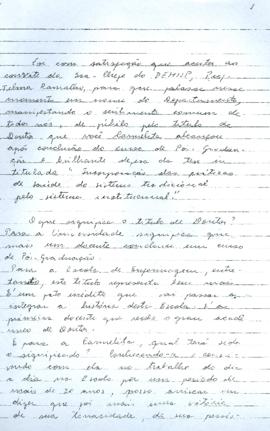 1
Foi com satisfação que aceitei ao
convite da Sra. Chefe do DEMISP, Profª
Telma Carvalho, para que falasse nesse
momento em nome do Departamento,
manifestando o sentimento comum de
todos nós, de júbilo pelo título de
Doutora que você Carmelita alcançou
após conclusão do curso de Pós-Gradua-
ção e brilhante defesa da tese in-
titulada "Incorporação das práticas
de saúde do sistema tradicional
pelo sistema institucional".
O que significa o título de Doutora?
Para a Universidade significa que
mais um docente concluiu um curso
de Pós-Graduação.
Para a Escola de Enfermagem, entre-
tanto, este título representa bem mais.
É um fato inédito que vai passar a
integrar a história desta Escola. É a
primeira docente que recebe o grau acadê-
mico de Doutora.
E para a Carmelita, qual terá sido
o significado? Conhecendo-a e convi-
vendo com ela no trabalho do dia
a dia na Escola por um período de
mais de 20 anos, posso arriscar em
dizer que foi mais uma vitória
de sua tenacidade, de sua